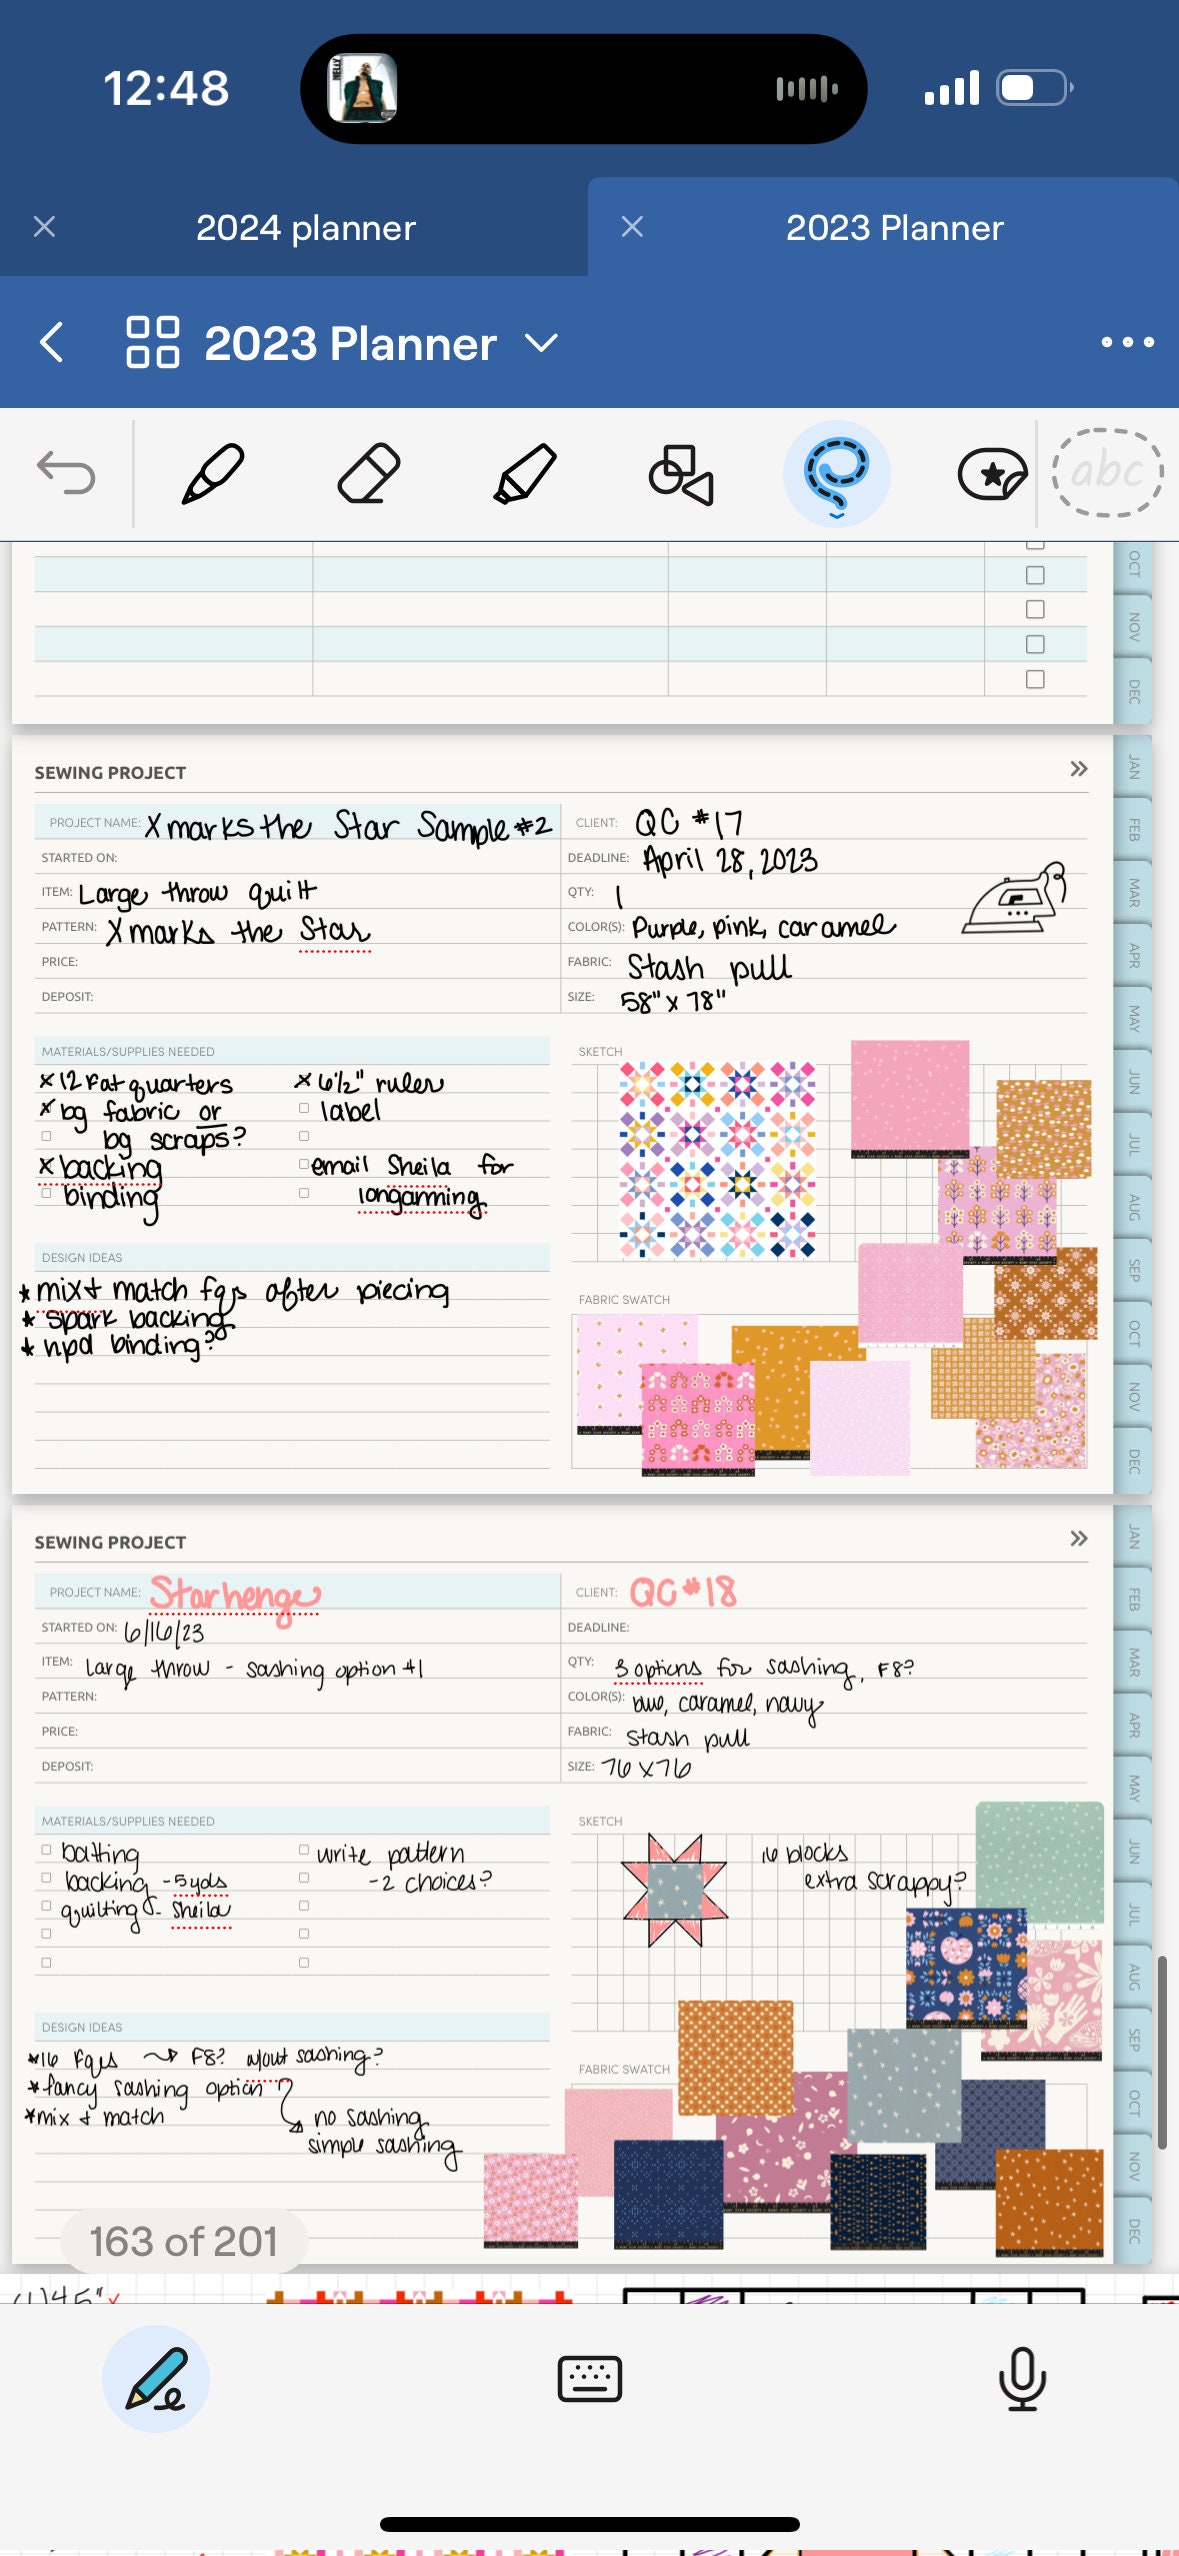 12:48
NELLY
2024 planner
2023 Planner
2023 Planner
abc
OCT
NOV
DEC
SEWING PROJECT
PROJECT NAME: X marks the Star Sample #2
CLIENT: QC #17
STARTED ON:
DEADLINE: April 28, 2023
ITEM: Large throw quilt
QTY: 1
PATTERN: X marks the Star
COLOR(S): Purple, pink, caramel
PRICE:
FABRIC: Stash pull
DEPOSIT:
SIZE: 58" x 78"
MATERIALS/SUPPLIES NEEDED
x 12 Fat quarters
x bg fabric or
bg scraps?
x backing
binding
x 6 1/2" ruler
label
email Sheila for
longarming
SKETCH
DESIGN IDEAS
* mix + match fqs after piecing
* spark backing
* npd binding?
FABRIC SWATCH
JAN
FEB
MAR
APR
MAY
JUN
JUL
AUG
SEP
OCT
NOV
DEC
SEWING PROJECT
PROJECT NAME: Starhenge
CLIENT: QC #18
STARTED ON: 6/16/23
DEADLINE:
ITEM: Large throw - sashing option #1
QTY: 3 options for sashing, F8?
PATTERN:
COLOR(S): blue, caramel, navy
PRICE:
FABRIC: Stash pull
DEPOSIT:
SIZE: 76 x 76
MATERIALS/SUPPLIES NEEDED
batting
backing - 5 yds
quilting - Sheila
write pattern
- 2 choices?
SKETCH
16 blocks
extra scrappy?
DESIGN IDEAS
*16 Fqs F8? w/out sashing?
*fancy sashing option
*mix + match
no sashing
simple sashing
FABRIC SWATCH
JAN
FEB
MAR
APR
MAY
JUN
JUL
AUG
SEP
OCT
NOV
DEC
163 of 201